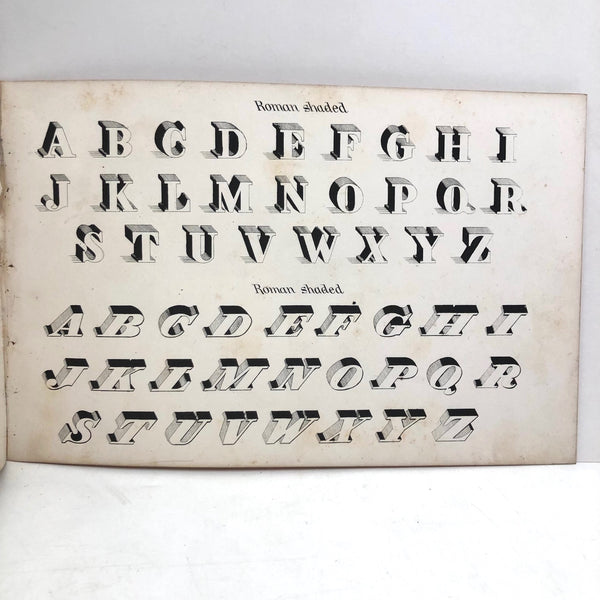 Roman shaded.
A B C D E F G H I
J K L M N O P Q R
S T U V W X Y Z
Roman shaded.
A B C D E F G H I
J K L M N O P Q R
S T U V W X Y Z